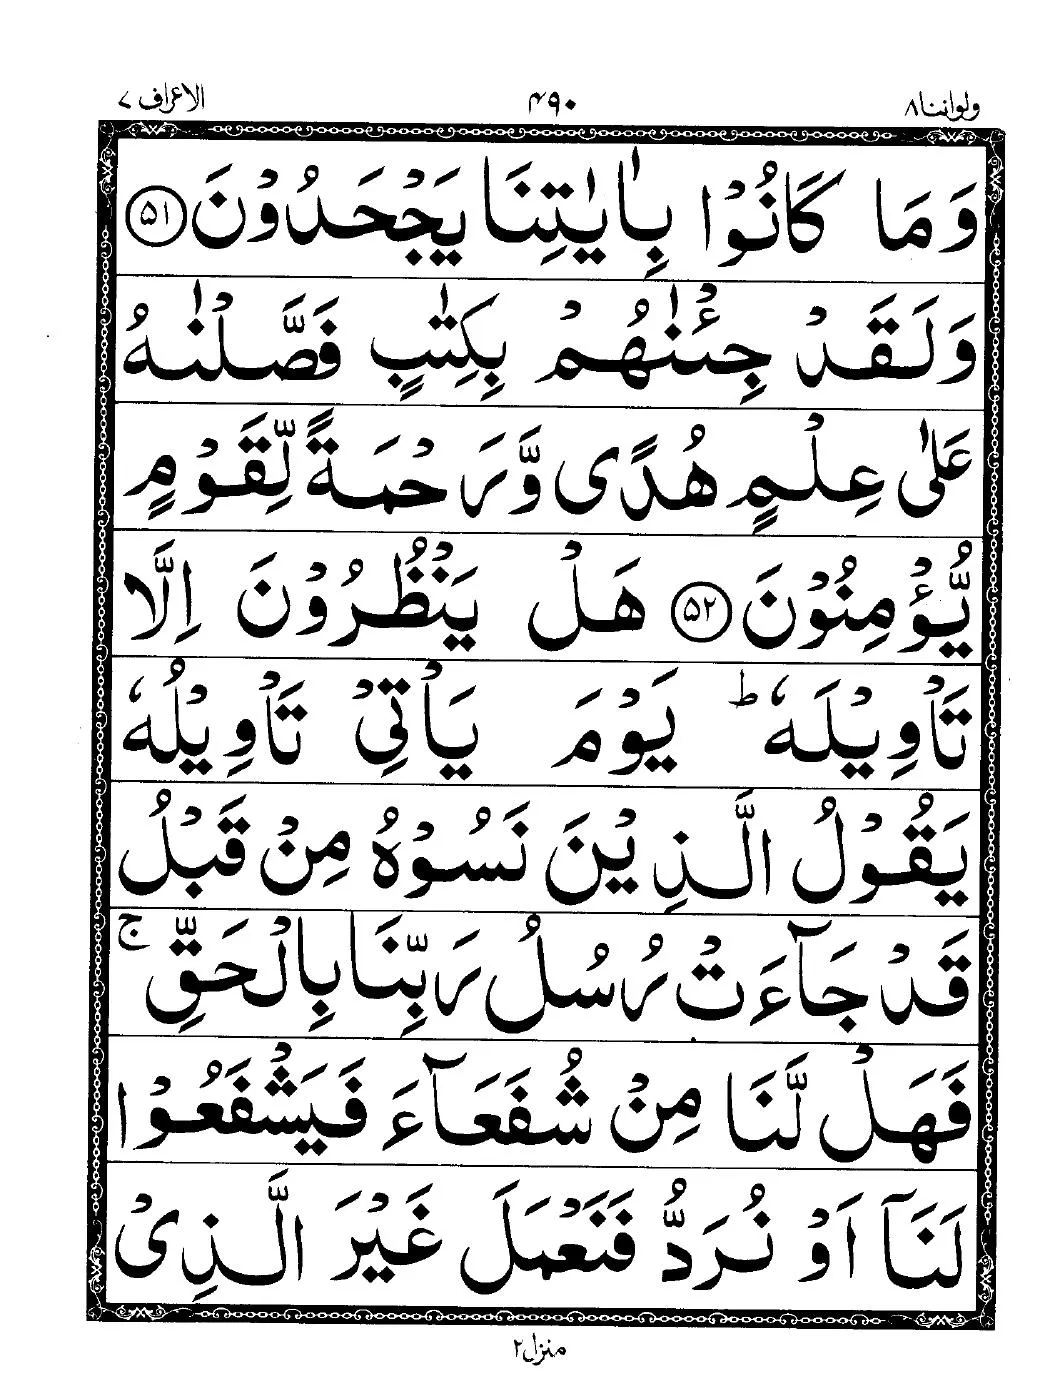 ولواننا ٨ ۴۹۰ الاعراف ۷
وَمَا كَانُوْا بِاٰيٰتِنَا يَجْحَدُوْنَ ۵۱
وَلَقَدْ جِئْنٰهُمْ بِكِتٰبٍ فَصَّلْنٰهُ
عَلٰى عِلْمٍ هُدًى وَّرَحْمَةً لِّقَوْمٍ
يُّؤْمِنُوْنَ ۵۲ هَلْ يَنْظُرُوْنَ اِلَّا
تَاْوِيْلَهٗ ؕ يَوْمَ يَاْتِيْ تَاْوِيْلُهٗ
يَقُوْلُ الَّذِيْنَ نَسُوْهُ مِنْ قَبْلُ
قَدْ جَآءَتْ رُسُلُ رَبِّنَا بِالْحَقِّ ۚ
فَهَلْ لَّنَا مِنْ شُفَعَآءَ فَيَشْفَعُوْا
لَنَآ اَوْ نُرَدُّ فَنَعْمَلَ غَيْرَ الَّذِيْ
منزل ۲